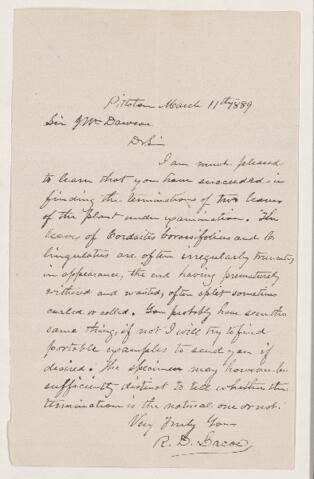 Pittston March 11th 1889
Sir J Wm Dawson
Dr Sir
I am much pleased
to learn that you have succeeded in
finding the terminations of two leaves
of the plant under examination. The
leaves of Cordaites Crassifolius and C.
lingulatus are often irregularly truncate
in appearance, the end having prematurely
withered and wasted, often split sometimes
curled or rolled. You probably have seen the
same thing, if not I will try to find
portable examples to send you if
desired. The specimen may however be
sufficiently distinct to tell whether the
termination is the natural one or not.
Very Truly Yours
R. D. Lacoe